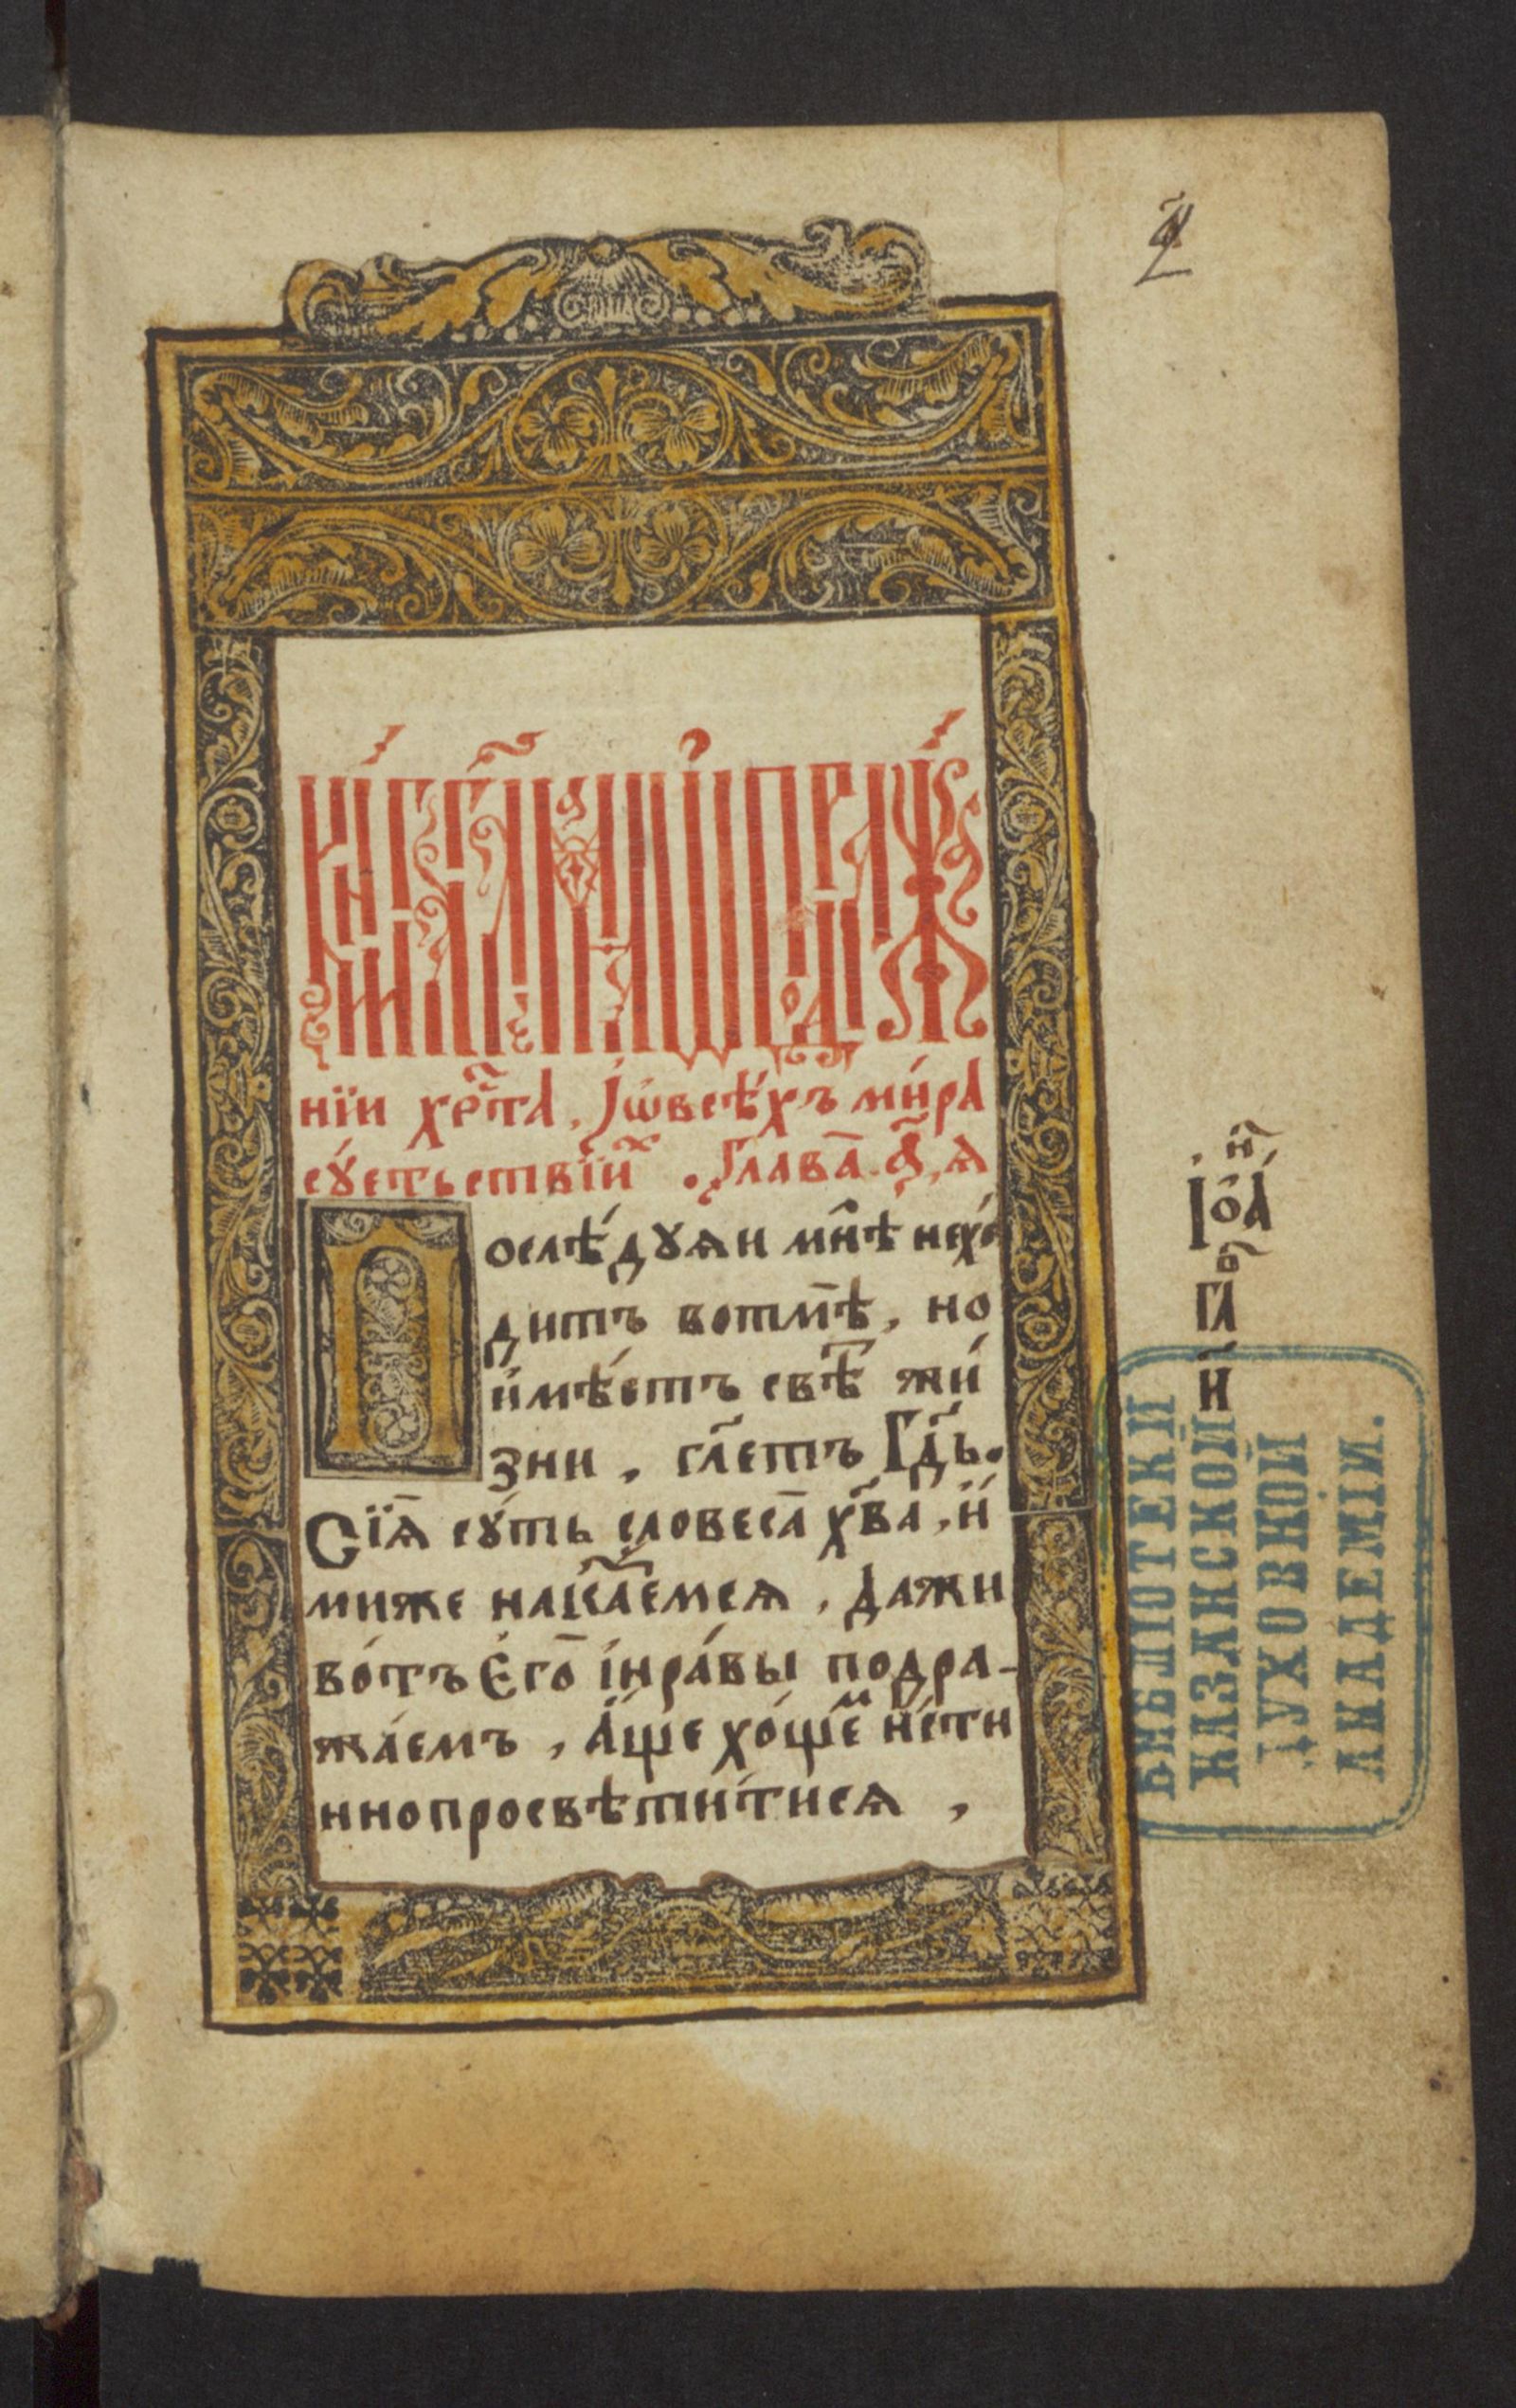 Кни́га пе́рваѧ ѡ҆ подража́
нїи хрⷭ҇та̀. І҆ѡ҆всѣ́хъ ми́ра
сꙋ́етьствїиⷯ. Глава̀ а҃, ѧ
Послѣ́дꙋѧи мнѣ̀ нехо́
дитъ вотмѣ̀, но
и҆мѣ́етъ свѣⷮ жи́
зни, гл҃етъ Гд҃ь.
Сїѧ̀ сꙋ́ть словеса̀ хв҃а, и҆́
миже нака҃аемсѧ, дажи
во́тъ Є҆го̀ і҆нра́вы подра-
жа́емъ, А҆́ще хо́щеⷨ и҆́сти
ннопросвѣти́тисѧ,
а҃
2
Іѡаⷩ҇
глⷡ҇а
и҃
БИБЛІОТЕКИ
КАЗАНСКОЙ
ДУХОВНОЙ
АКАДЕМІИ.